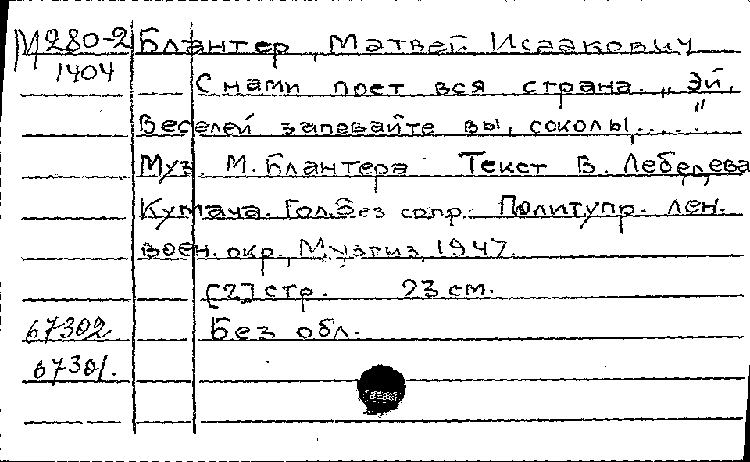 М280-2 Блантер, Матвей Исаакович
1404
С нами поет вся страна. „Эй,
веселей запевайте вы, соколы,....."
Муз. М. Блантера Текст В. Лебедева
Кумача. Гол. без сопр. Политупр. Лен.
воен. окр., Музгиз, 1947.
[2] стр. 23 см.
67302 Без обл.
67301.